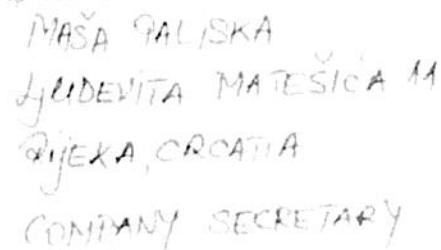 MAŠA PALISKA
LJUDEVITA MATEŠIĆA 11
RIJEKA, CROATIA
COMPANY SECRETARY